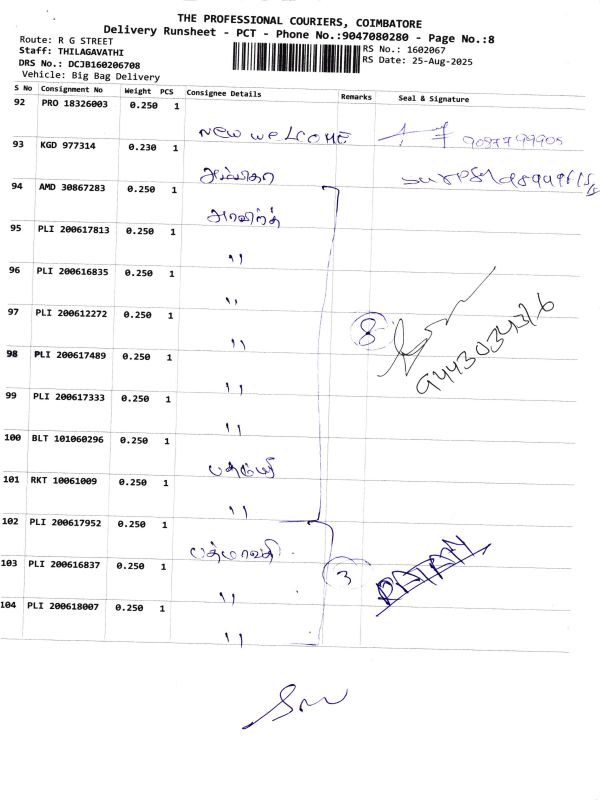 THE PROFESSIONAL COURIERS, COIMBATORE
Delivery Runsheet - PCT - Phone No.:9047080280 - Page No.:8
Route: R G STREET
RS No.: 1602067
Staff: THILAGAVATHI
RS Date: 25-Aug-2025
DRS No.: DCJB160206708
Vehicle: Big Bag Delivery
S No Consignment No Weight PCS Consignee Details Remarks Seal & Signature
92 PRO 18326003 0.250 1
NEW WELCOME
93 KGD 977314 0.230 1
94 AMD 30867283 0.250 1
அரவிந்த்
95 PLI 200617813 0.250 1
''
96 PLI 200616835 0.250 1
''
97 PLI 200612272 0.250 1
'' 8
9443034316
98 PLI 200617489 0.250 1
''
99 PLI 200617333 0.250 1
''
100 BLT 101060296 0.250 1
101 RKT 10061009 0.250 1
''
102 PLI 200617952 0.250 1
பத்மாவதி
103 PLI 200616837 0.250 1
'' 3
104 PLI 200618007 0.250 1
''